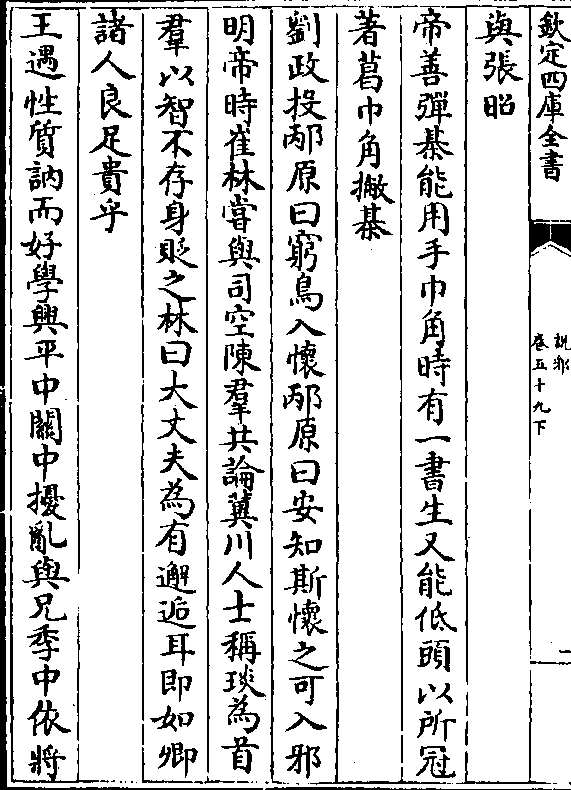 欽定四庫全書
說郛
卷五十九下
二
與張昭
帝善彈棊能用手巾角時有一書生又能低頭以所冠
著葛巾角撇棊
劉政投邴原曰窮鳥入懷邴原曰安知斯懷之可入邪
明帝時崔林嘗與司空陳羣共論冀川人士稱琰為首
羣以智不存身貶之林曰大丈夫為有邂逅耳即如卿
諸人良足貴乎
王遇性質訥而好學興平中關中擾亂與兄季中依將